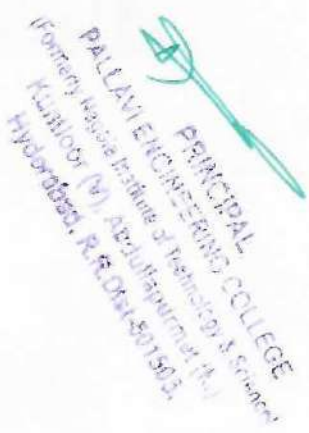 PRINCIPAL
PALLAVI ENGINEERING COLLEGE
(Formerly Nagole Institute of Technology & Science)
Kuntloor (V), Abdullapurmet (M.)
Hyderabad, R.R.Dist-501505.